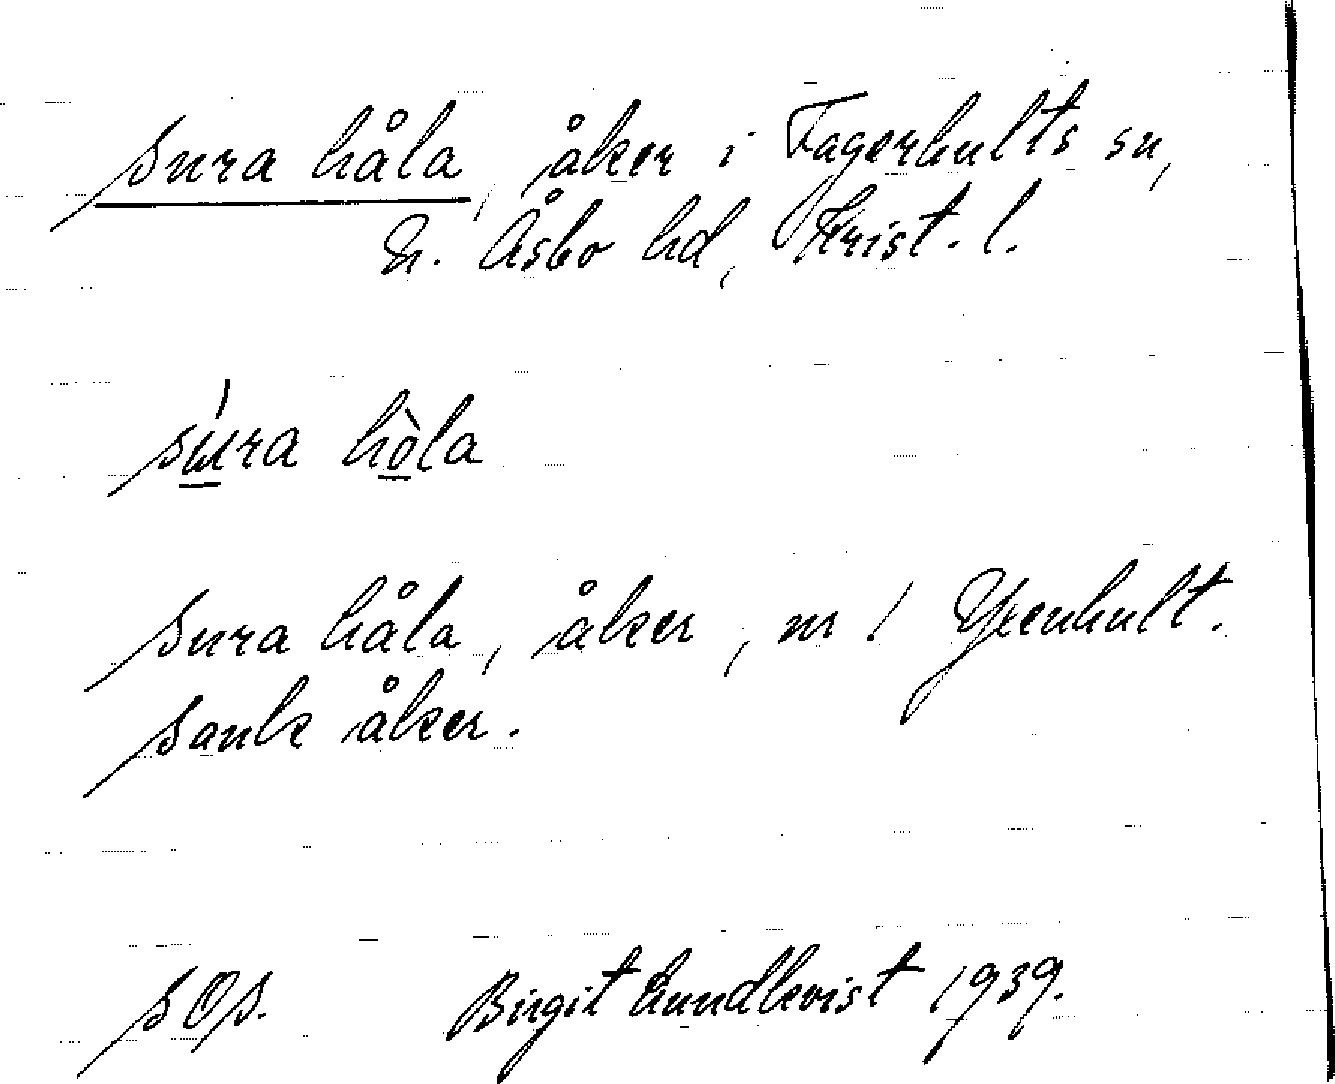 Sura håla, åker i Fagerhults sn,
N. Åsbo hd, Krist. l.
su̲ra hò̲la
Sura håla, åker, nr 1 Yxenhult.
Sank åker.
Birgit Lundkvist 1939.